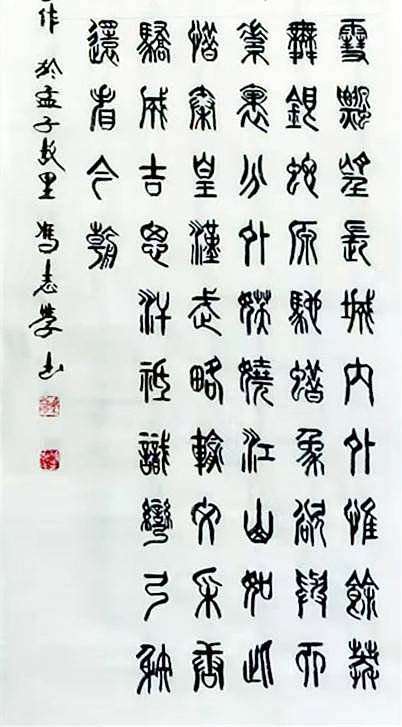 雪飄望長城內外惟餘莽
舞銀蛇原馳蜡象欲與天
素裹分外妖嬈江山如此
惜秦皇漢武略輸文采唐
驕成吉思汗祗識彎弓射
還看今朝
作 於孟子故里 馮志学书